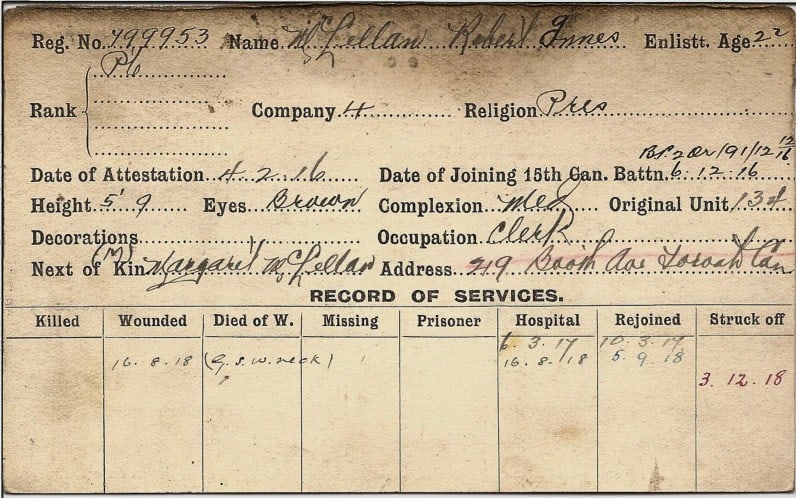 Reg. No. 799953 Name McLellan Robert Innes Enlistt. Age 22
Pte
Rank Company 4 Religion Pres
Date of Attestation 4.2.16 Date of Joining 15th Can. Battn. 6.12.16
Height 5' 9 Eyes Brown Complexion Med Original Unit 134
Decorations Occupation Clerk
Next of Kin (M) Margaret McLellan Address 219 Booth Ave Toronto Can
RECORD OF SERVICES.
Killed Wounded Died of W. Missing Prisoner Hospital Rejoined Struck off
6.3.17 10.3.17
16.8.18 (G.S.W. neck) 16.8.18 5.9.18
3.12.18